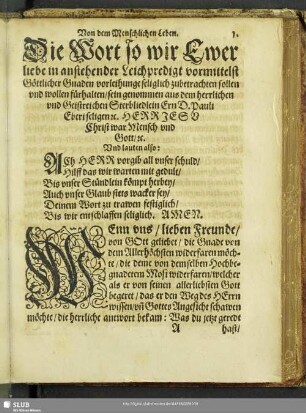 Von dem Menschlichen Leben.
Die Wort so wir Ewer
liebe in anstehender Leichpredigt vormittelst
Göttlicher Gnaden vorleihunge seliglich zubetrachten sollen
vnd wollen fürhalten/ sein genomen aus dem herrlichen
vnd Geistreichen Sterbliedlein Ern D. Pauli
Eberi seligen ꝛc. HERR JESU
Christ war Mensch vnd
Gott/ ꝛc.
Vnd lauten also:
Ach HERR vorgib all vnser schuld/
Hilff das wir warten mit gedult/
Bis vnser Stündlein kömpt herbey/
Auch vnser Glaub stets wacker sey/
Deinem Wort zu trawen festiglich/
Bis wir entschlaffen seliglich. AMEN.
WEnn vns/ lieben Freunde/
von GOtt geliebet/ die Gnade von
dem Allerhöchsten widerfaren möch-
te/ die denn von demselben Hochbe-
gnadeten Mosi widerfaren/ welcher
als er von seinen allerliebsten Gott
begeret/ das er den Weg des HErrn
wissen/ vñ Gottes Angesicht schawen
möchte/ die herrliche antwort bekam: Was du jetzt geredt
A
hast/
SLUB